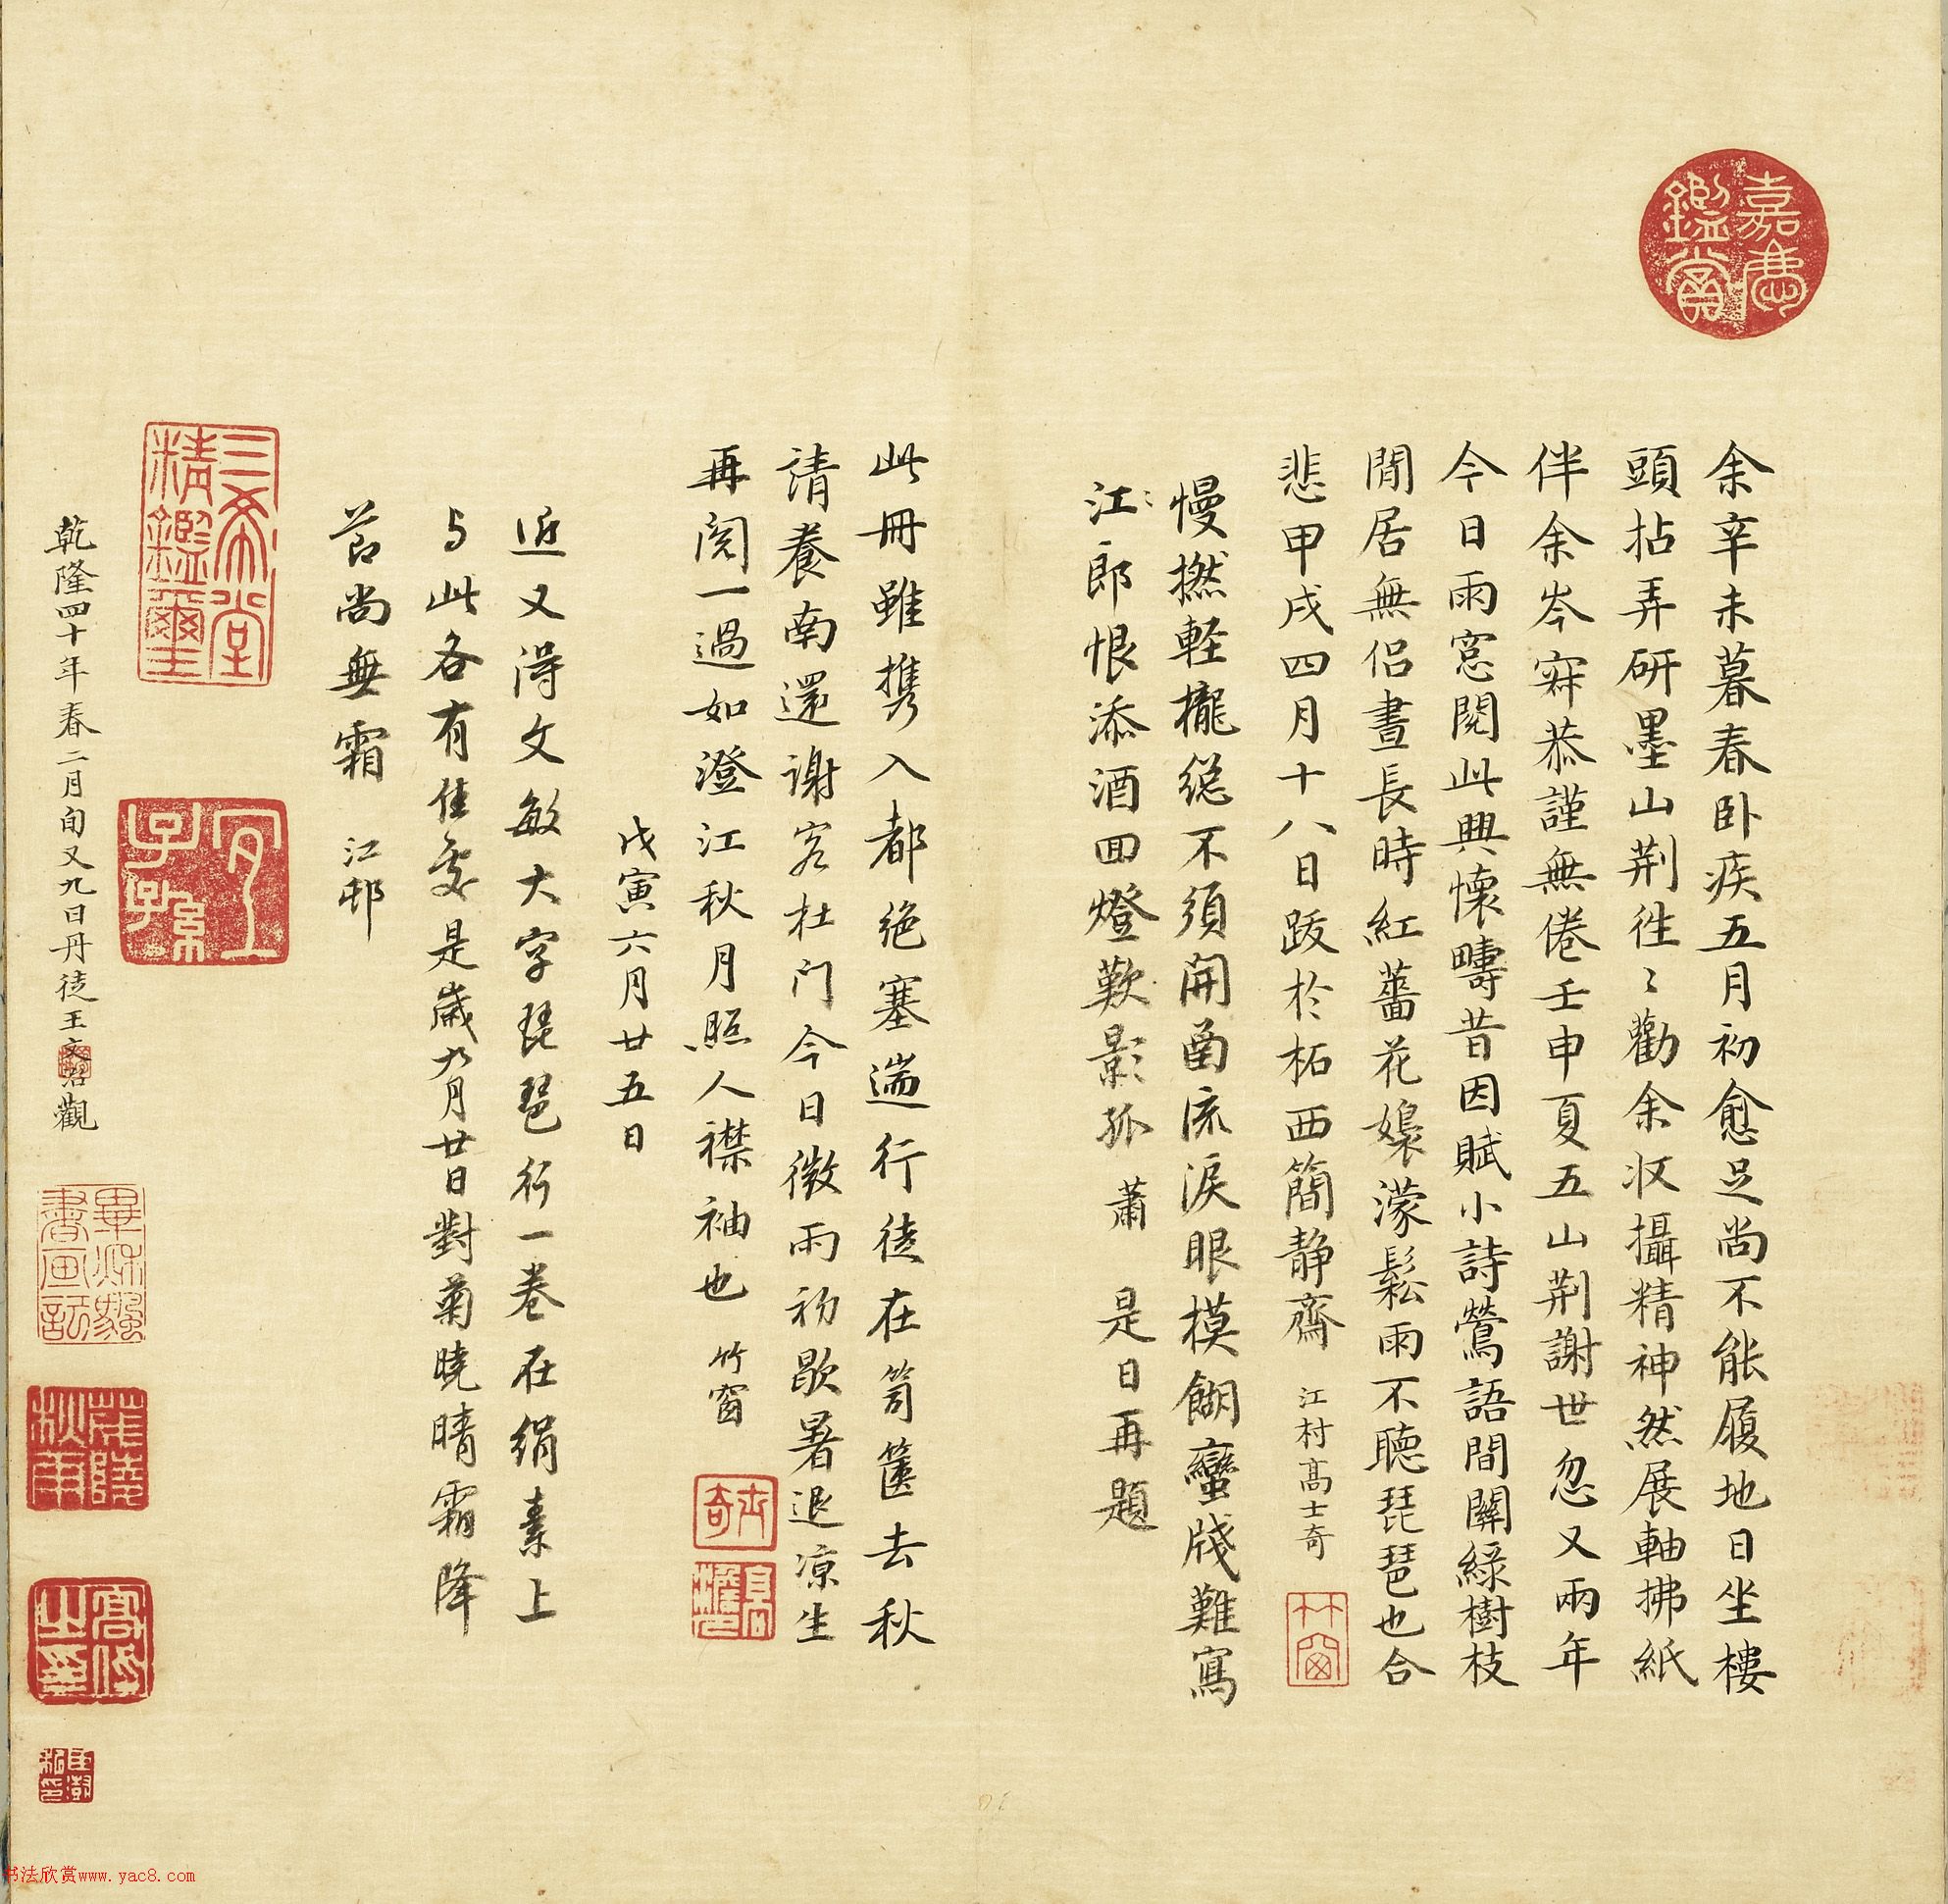 嘉慶鑑賞
余辛未暮春卧疾五月初愈足尚不能履地日坐樓
頭拈弄研墨山荆徃〻勸余收攝精神然展軸拂紙
伴余岑寂恭謹無倦壬申夏五山荆謝世忽又兩年
今日雨窓閱此興懷疇昔因賦小詩鶯語間關綠樹枝
閒居無侶晝長時紅薔花嬝濛鬆雨不聽琵琶也合
悲甲戌四月十八日跋於柘西簡静齋 江村高士奇
竹窗
慢撚軽攏総不須開函流淚眼模餬蠻牋難寫
江郎恨添酒回燈歎影孤 蕭〻 是日再題
此冊雖携入都绝塞遄行徒在笥篋去秋
請養南還謝客杜门今日微雨初歇暑退凉生
再閱一過如澄江秋月照人襟袖也 竹窗
士奇
高澹人
戊寅六月廿五日
近又淂文敏大字琵琶行一卷在绢素上
与此各有佳䖏是歲九月廿日對菊曉晴霜降
莭尚無霜 江邨
三希堂精鑑璽
宜子孫
乾隆四十年春二月旬又九日丹徒王文治觀
畢秋㠙書画記
高㑺之印
书法欣赏www.yac8.com